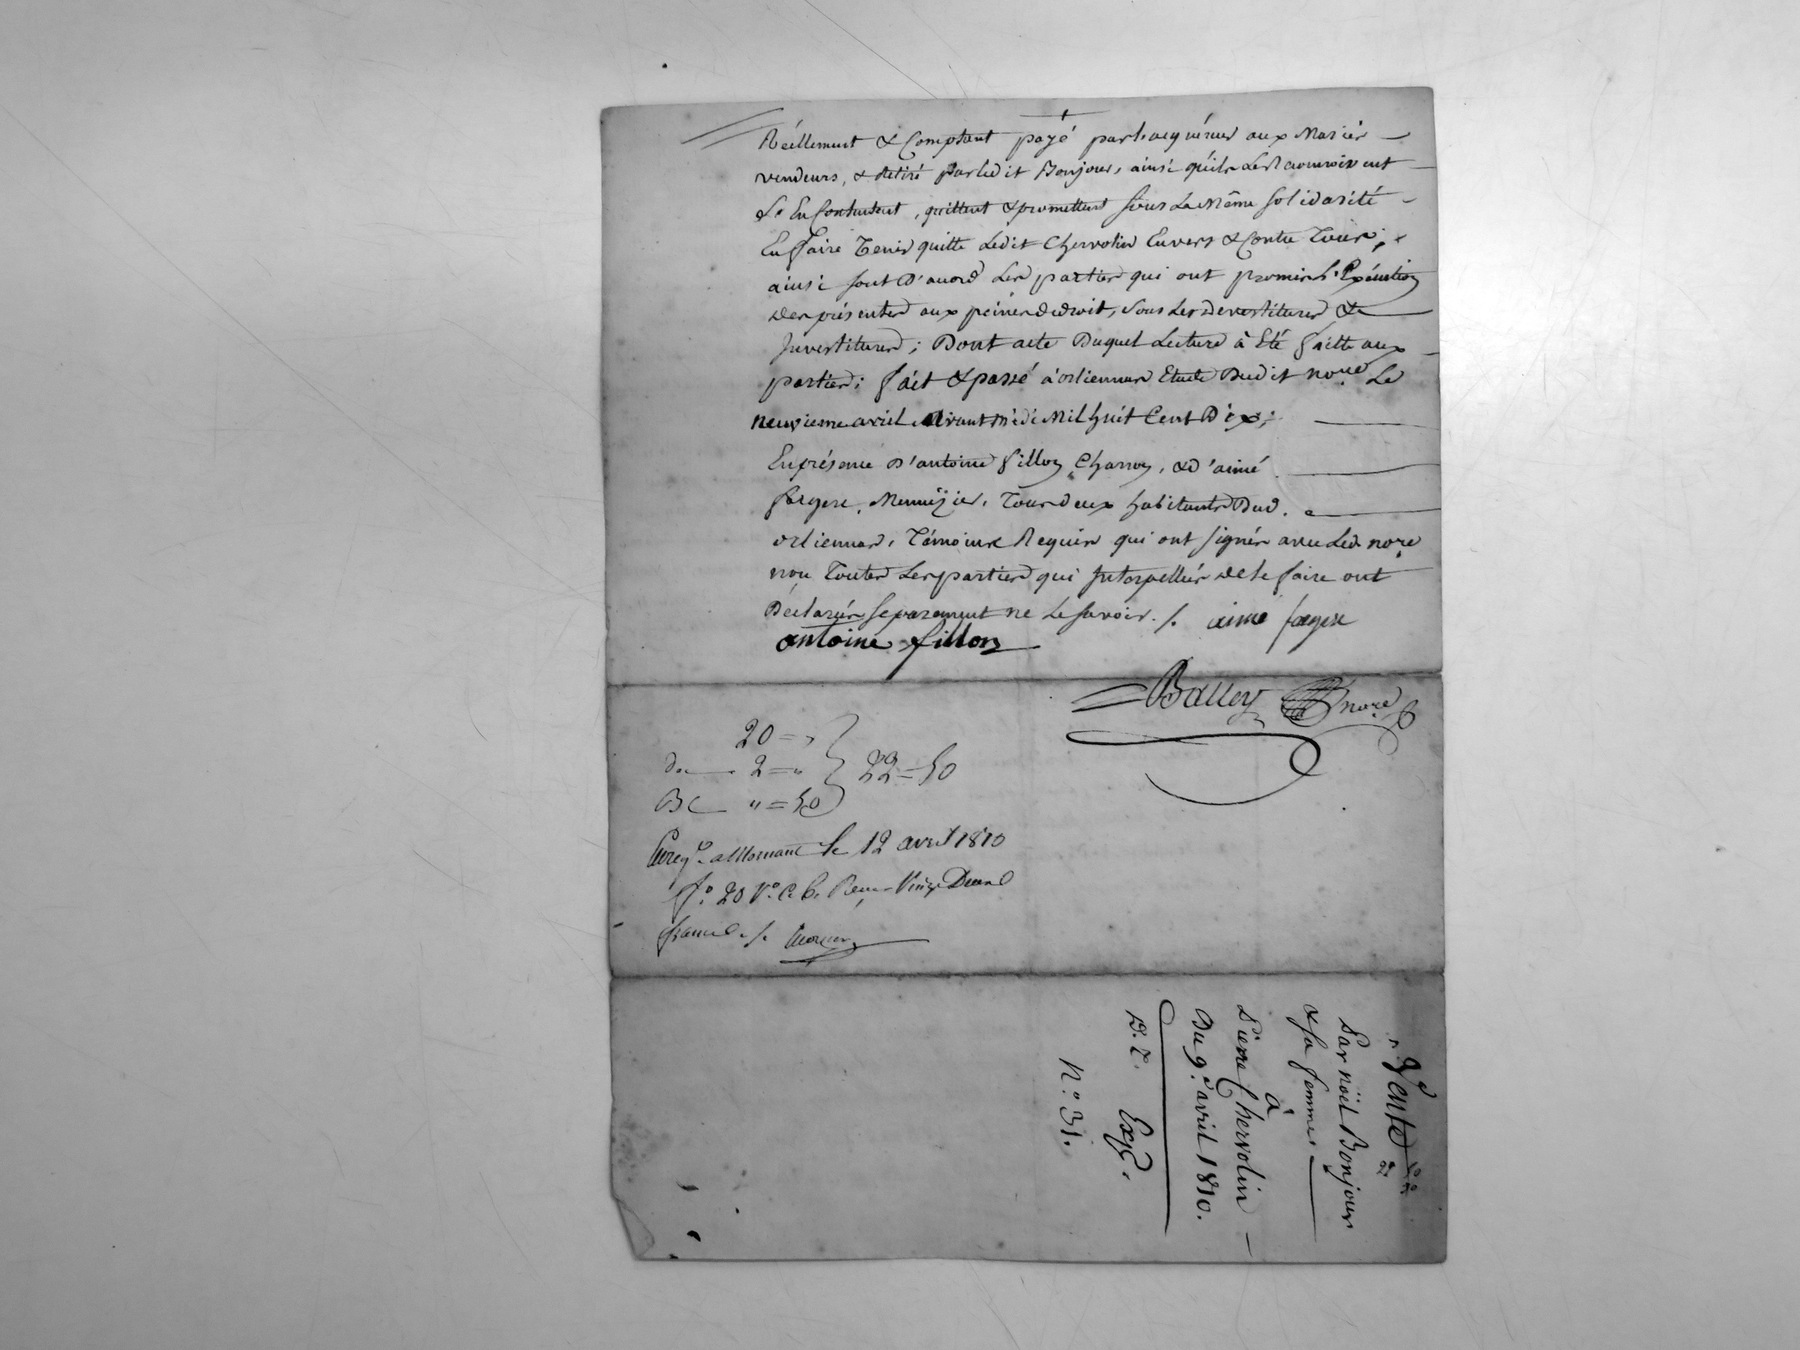 Réellement & Comptant payé par l'acquéreur aux Mariés
vendeurs, & Retiré Par ledit Bonjour, ainsi qu'ils le Reconnoissent
S'en Contentent, quittent & promettent sous La Même solidarité
En faire Tenir quitte Ledit Chervolin Envers & Contre Tous;
ainsi sont D'accord Les parties qui ont promis L'Exécution
des présentes aux peines de droit, sous Les devestitures &
Investitures; Dont acte Duquel Lecture à Eté faitte aux
parties; fait & passé à orliennas Etude Dudit nore. Le
neuvieme avril avant Midi Mil huit Cent Dix;
En présence D'antoine fillon Charron, & D'aimé
fargere, Menuizier, Tous deux habitants Dud.
orliennas, Témoins Requis qui ont signés avec Led. nore
non Toutes Les parties qui Interpellées de le faire ont
Déclarées separement ne Le savoir ./. aimé fargere
antoine fillon
Balley nore
20 = "
De 2 = " 22 = 50
" = 50
Enregé. a Mornant le 12 avril 1810
fo. 20 Vo. C. 6. Reçu Vingt Deux
francs ./.
Vente
Par noël Bonjour
& sa femme
à
Pierre Chervolin
Du 9e. avril 1810.
Exp.
No. 31.